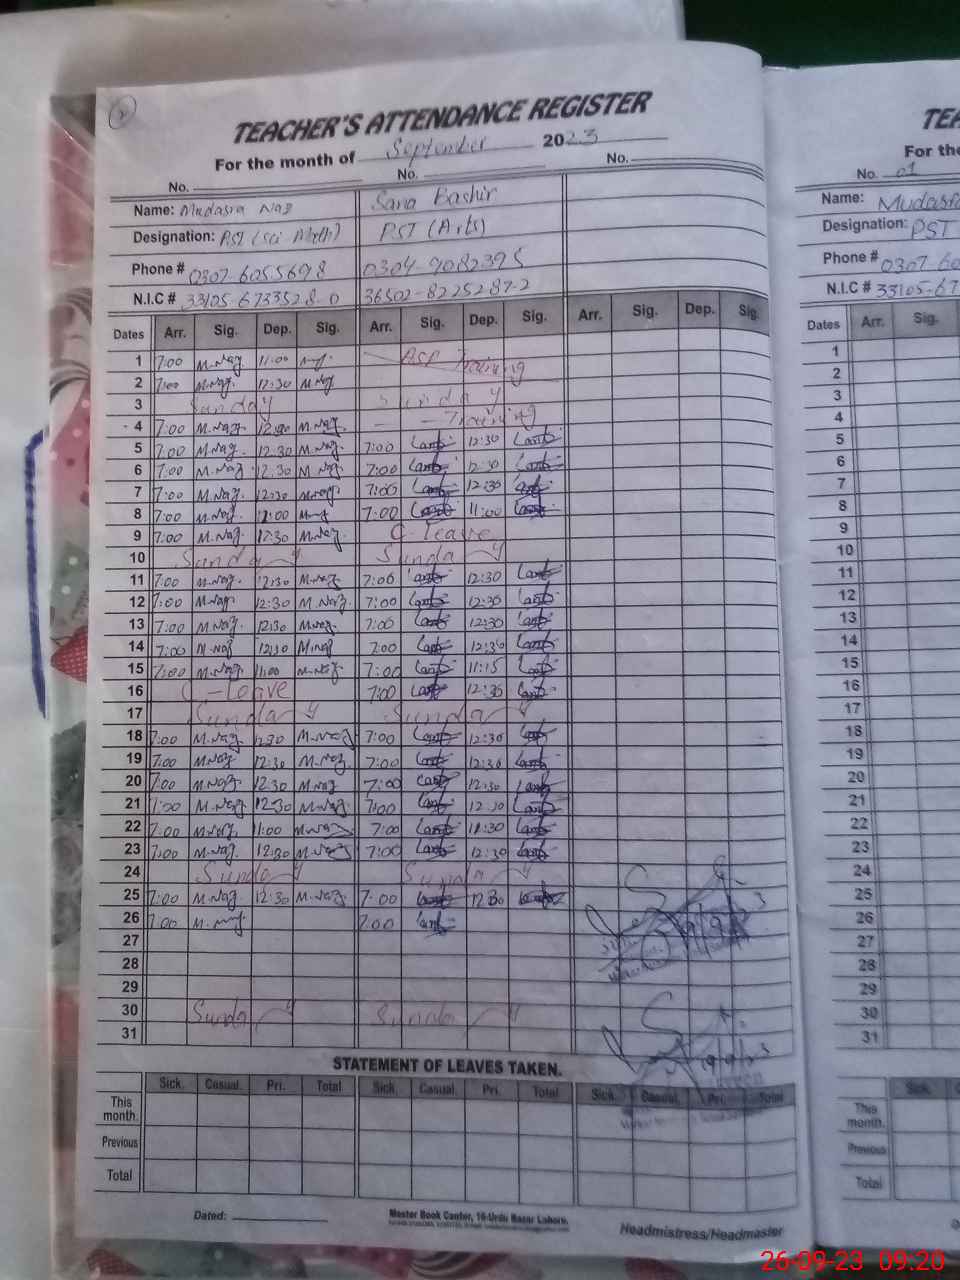 TEACHER'S ATTENDANCE REGISTER
For the month of September 2023
No. No. No.
Name: Mudasra Naz Sana Bashir
Designation: PST (Sci-Math) PST (Arts)
Phone # 0307-6055698 0304-9082395
N.I.C # 33105-6733528-0 36502-8225287-2
Dates Arr. Sig. Dep. Sig. Arr. Sig. Dep. Sig. Arr. Sig. Dep. Sig.
1 7:00 M.Naz 11:00 Training
2 7:00 M.Naz. 12:30 M.Naz
3 Sunday Sunday
4 7:00 M.Naz. 12:30 M.Naz. Training
5 7:00 M.Naz. 12:30 M.Naz. 7:00 12:30
6 7:00 M.Naz 12:30 M.Naz. 7:00 12:30
7 7:00 M.Naz. 12:30 M.Naz 7:00 12:30
8 7:00 M.Naz. 11:00 7:00 11:00
9 7:00 M.Naz. 12:30 M.Naz. C-leave
10 Sunday Sunday
11 7:00 M.Naz. 12:30 M.Naz 7:00 12:30
12 7:00 M.Naz 12:30 M.Naz. 7:00 12:30
13 7:00 M.Naz. 12:30 M.Naz. 7:00 12:30
14 7:00 M.Naz 12:30 M.Naz 7:00 12:30
15 7:00 M.Naz 11:00 M.Naz. 7:00 11:15
16 C-leave 7:00 12:30
17 Sunday Sunday
18 7:00 M.Naz 12:30 M.Naz 7:00 12:30
19 7:00 M.Naz 12:30 M.Naz. 7:00 12:30
20 7:00 M.Naz 12:30 M.Naz 7:00 12:30
21 7:00 M.Naz 12:30 M.Naz. 7:00 12:30
22 7:00 M.Naz. 11:00 M.Naz 7:00 11:30
23 7:00 M.Naz. 12:30 M.Naz 7:00 12:30
24 Sunday Sunday
25 7:00 M.Naz. 12:30 M.Naz 7:00 12:30
26 7:00 7:00
27
28
29
30 Sunday Sunday
31
19/9/23
STATEMENT OF LEAVES TAKEN.
Sick. Casual. Pri. Total Sick. Casual. Pri. Total Sick. Casual. Pri. Total
This month.
Previous
Total
Dated:
Master Book Center, 16-Urdu Bazar Lahore.
Headmistress/Headmaster
TEA
For the
No. 01
Name: Mudasra
Designation: PST
Phone # 0307-60
N.I.C # 33105-67
Dates Arr. Sig.
1
2
3
4
5
6
7
8
9
10
11
12
13
14
15
16
17
18
19
20
21
22
23
24
25
26
27
28
29
30
31
Sick.
This month.
Previous
Total
26-09-23 09:20